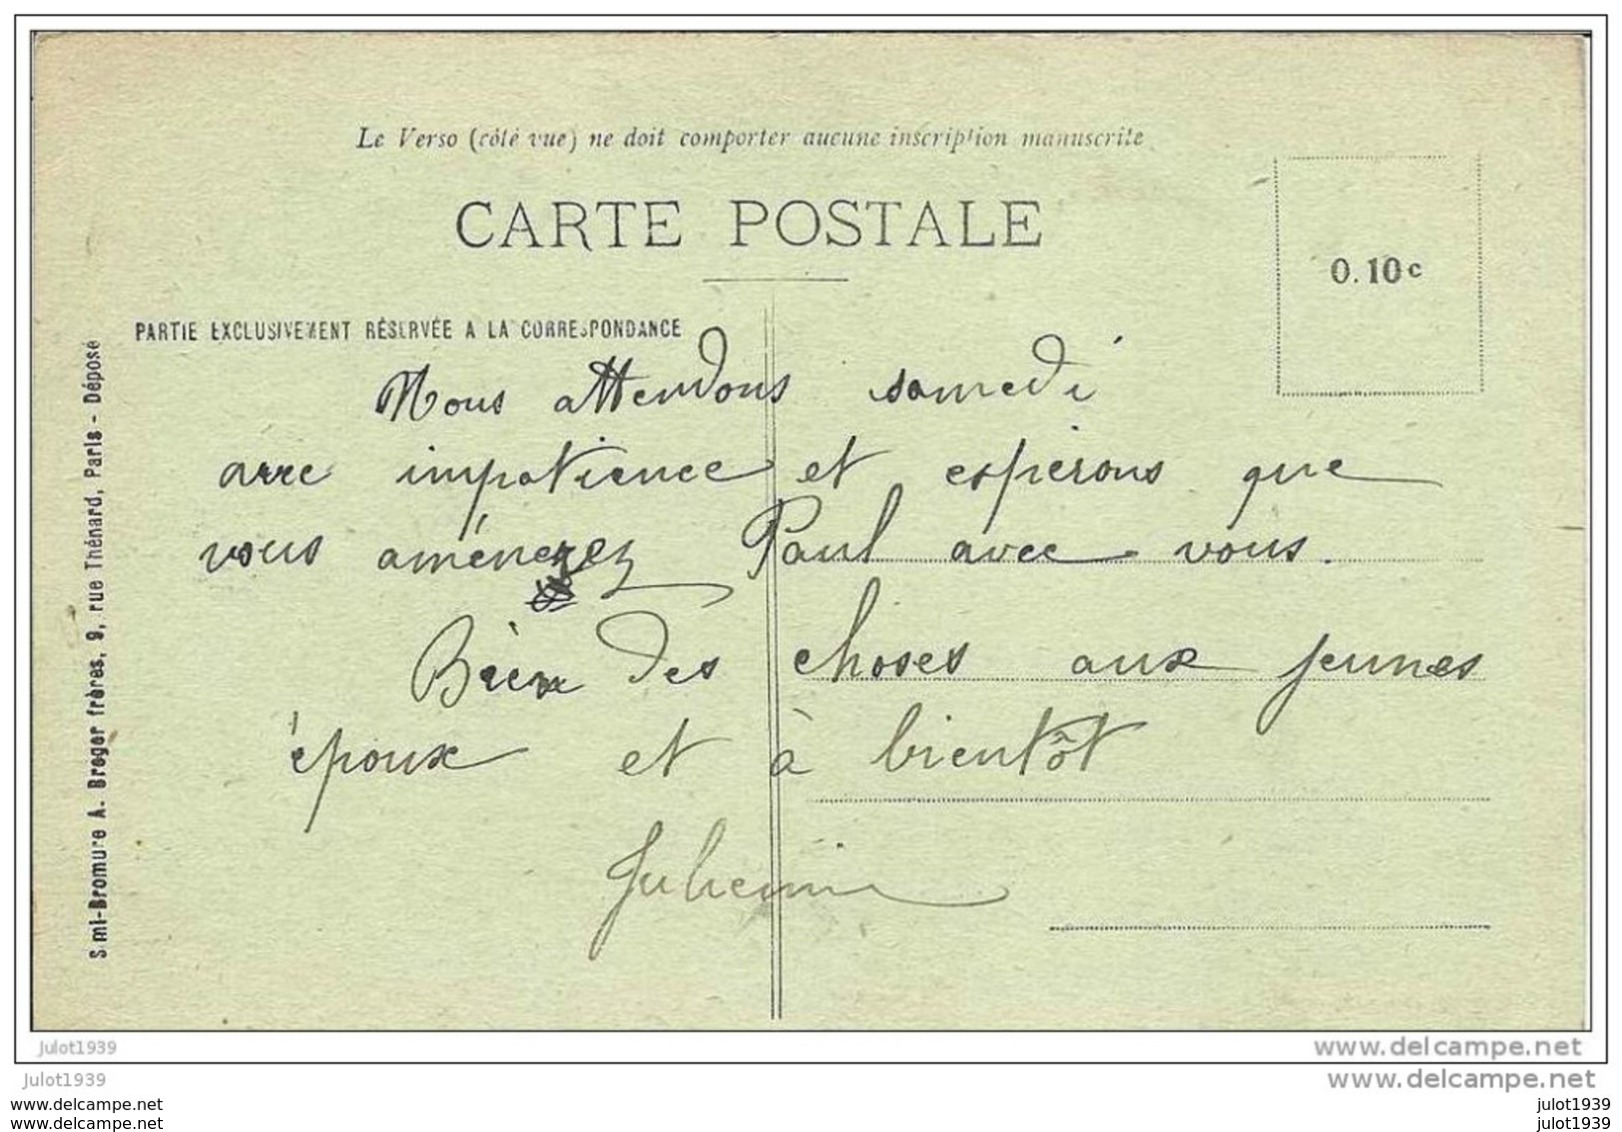 Le Verso (côté vue) ne doit comporter aucune inscription manuscrite
CARTE POSTALE
0.10c
PARTIE EXCLUSIVEMENT RÉSERVÉE A LA CORRESPONDANCE
Nous attendons samedi
avec impatience et espérons que
vous aménerez Paul avec vous.
Bien des choses aux jeunes
époux et à bientôt
Semi-Bromure A. Breger frères, 9, rue Thénard, Paris - Déposé
julot1939
www.delcampe.net
julot1939
www.delcampe.net
www.delcampe.com
julot1939
www.delcampe.com
julot1939